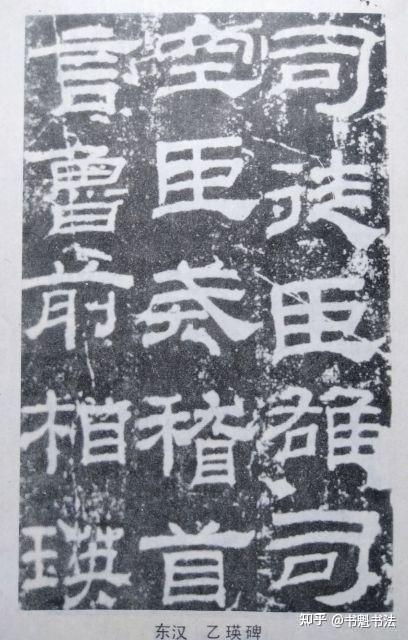 司徒臣雄司
空臣戒稽首
言魯前相瑛
东汉 乙瑛碑
知乎 @书魁书法